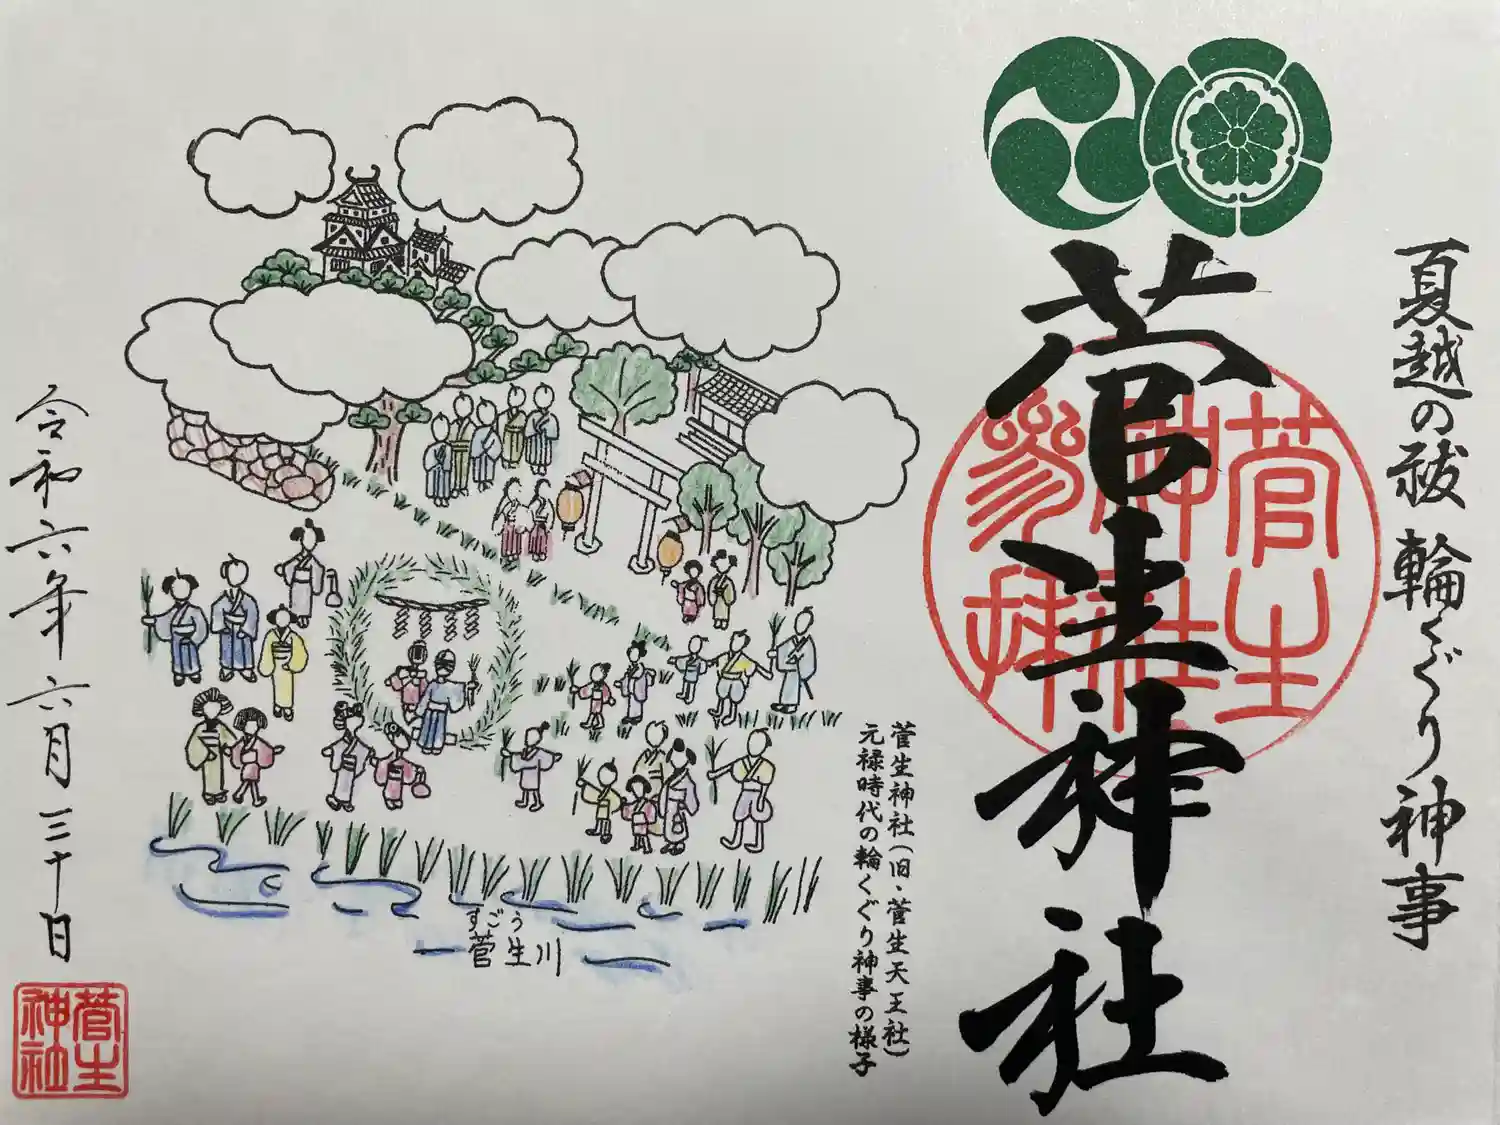 夏越の祓 輪くぐり神事
菅生神社
参拝
菅生神社
菅生神社(旧・菅生天王社)
元禄時代の輪くぐり神事の様子
すごう
菅生川
令和六年六月三十日
菅生神社